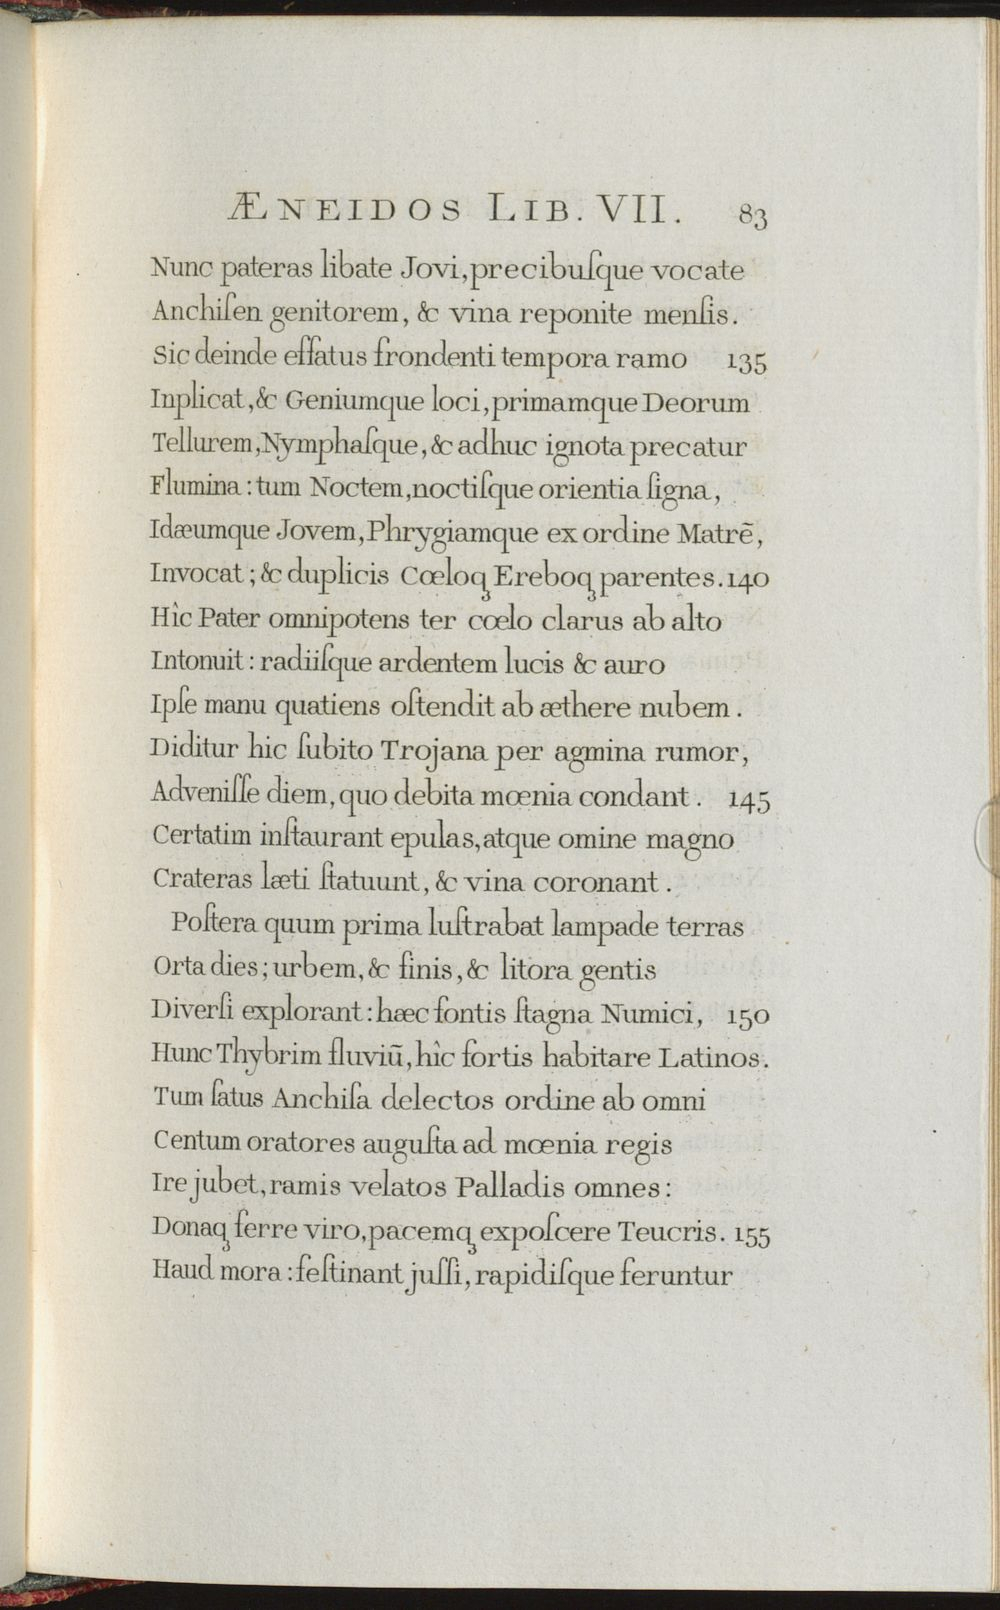 ÆNEIDOS LIB. VII. 83
Nunc pateras libate Jovi, precibuſque vocate
Anchiſen genitorem, & vina reponite menſis.
Sic deinde effatus frondenti tempora ramo 135
Inplicat, & Geniumque loci, primamque Deorum
Tellurem, Nymphaſque, & adhuc ignota precatur
Flumina: tum Noctem, noctiſque orientia ſigna,
Idæumque Jovem, Phrygiamque ex ordine Matrē,
Invocat; & duplicis Cœloqꝫ Ereboqꝫ parentes. 140
Hìc Pater omnipotens ter cœlo clarus ab alto
Intonuit: radiiſque ardentem lucis & auro
Ipſe manu quatiens oſtendit ab æthere nubem.
Diditur hic ſubito Trojana per agmina rumor,
Adveniſſe diem, quo debita mœnia condant. 145
Certatim inſtaurant epulas, atque omine magno
Crateras læti ſtatuunt, & vina coronant.
Poſtera quum prima luſtrabat lampade terras
Orta dies; urbem, & finis, & litora gentis
Diverſi explorant: hæc fontis ſtagna Numici, 150
Hunc Thybrim fluviū, hìc fortis habitare Latinos.
Tum ſatus Anchiſa delectos ordine ab omni
Centum oratores auguſta ad mœnia regis
Ire jubet, ramis velatos Palladis omnes:
Donaqꝫ ferre viro, pacemqꝫ expoſcere Teucris. 155
Haud mora: feſtinant juſſi, rapidiſque feruntur